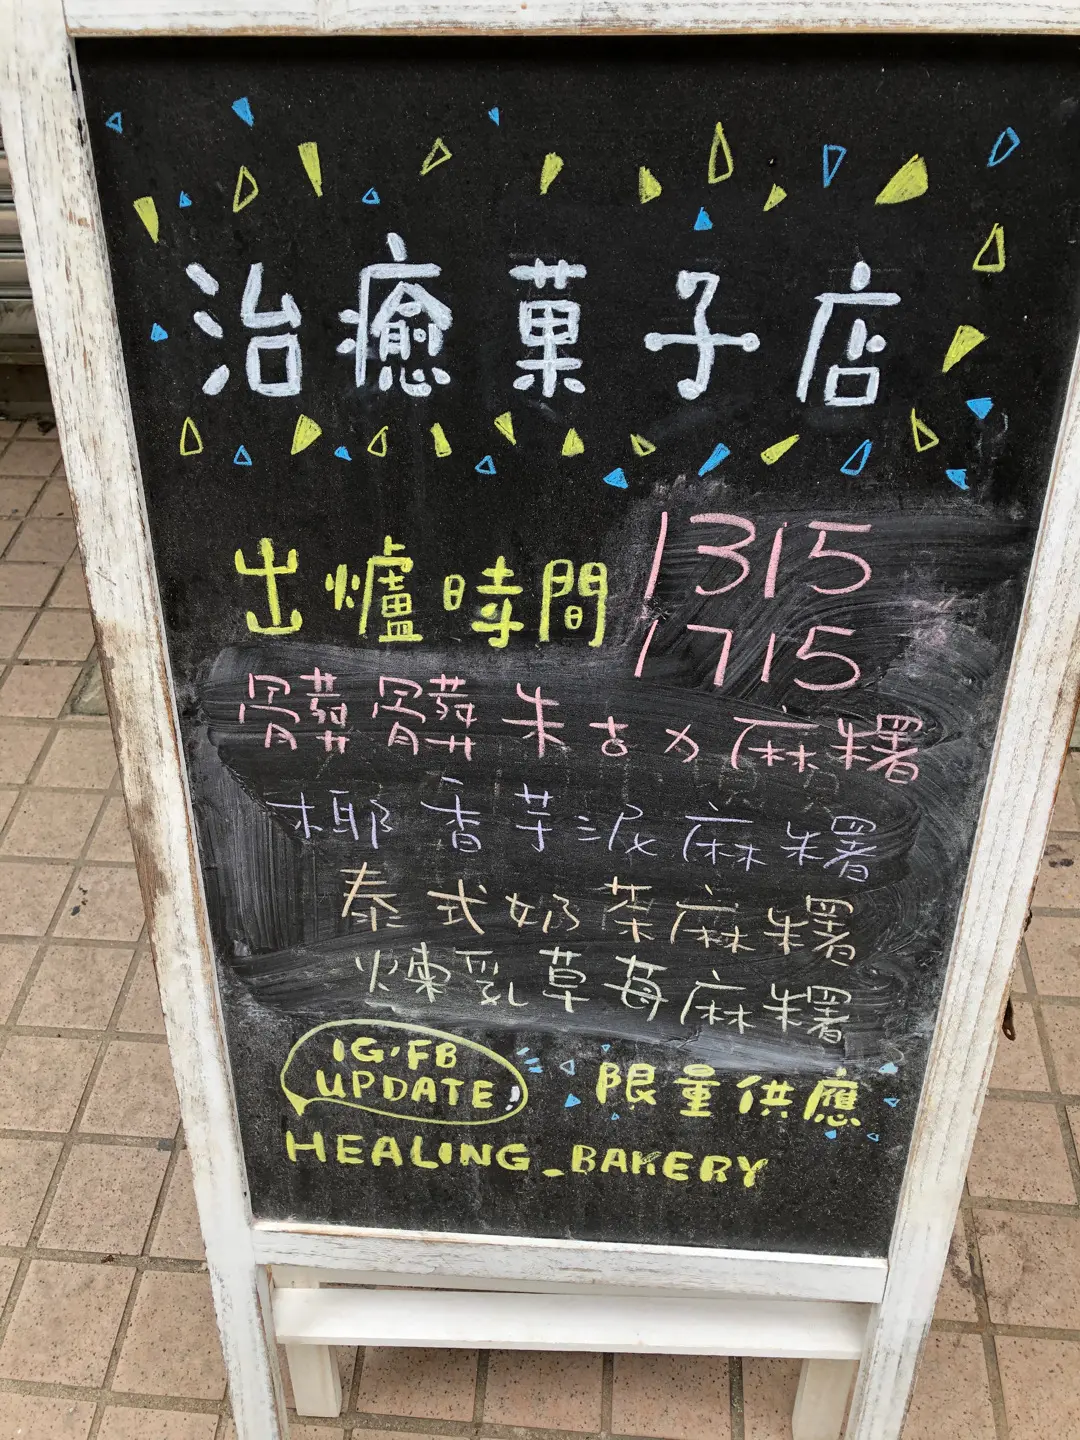 治癒菓子店
出爐時間 1315
1715
髒髒朱古力麻糬
椰香芋泥麻糬
泰式奶茶麻糬
煉乳草莓麻糬
IG、FB
UPDATE!
限量供應
HEALING_BAKERY